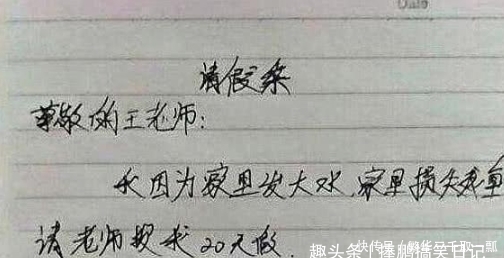 Date
请假条
尊敬的王老师:
我因为家里发大水,家里损失惨重
请老师授我20天假.
快传号/
趣头条/捧鹏搞笑日记